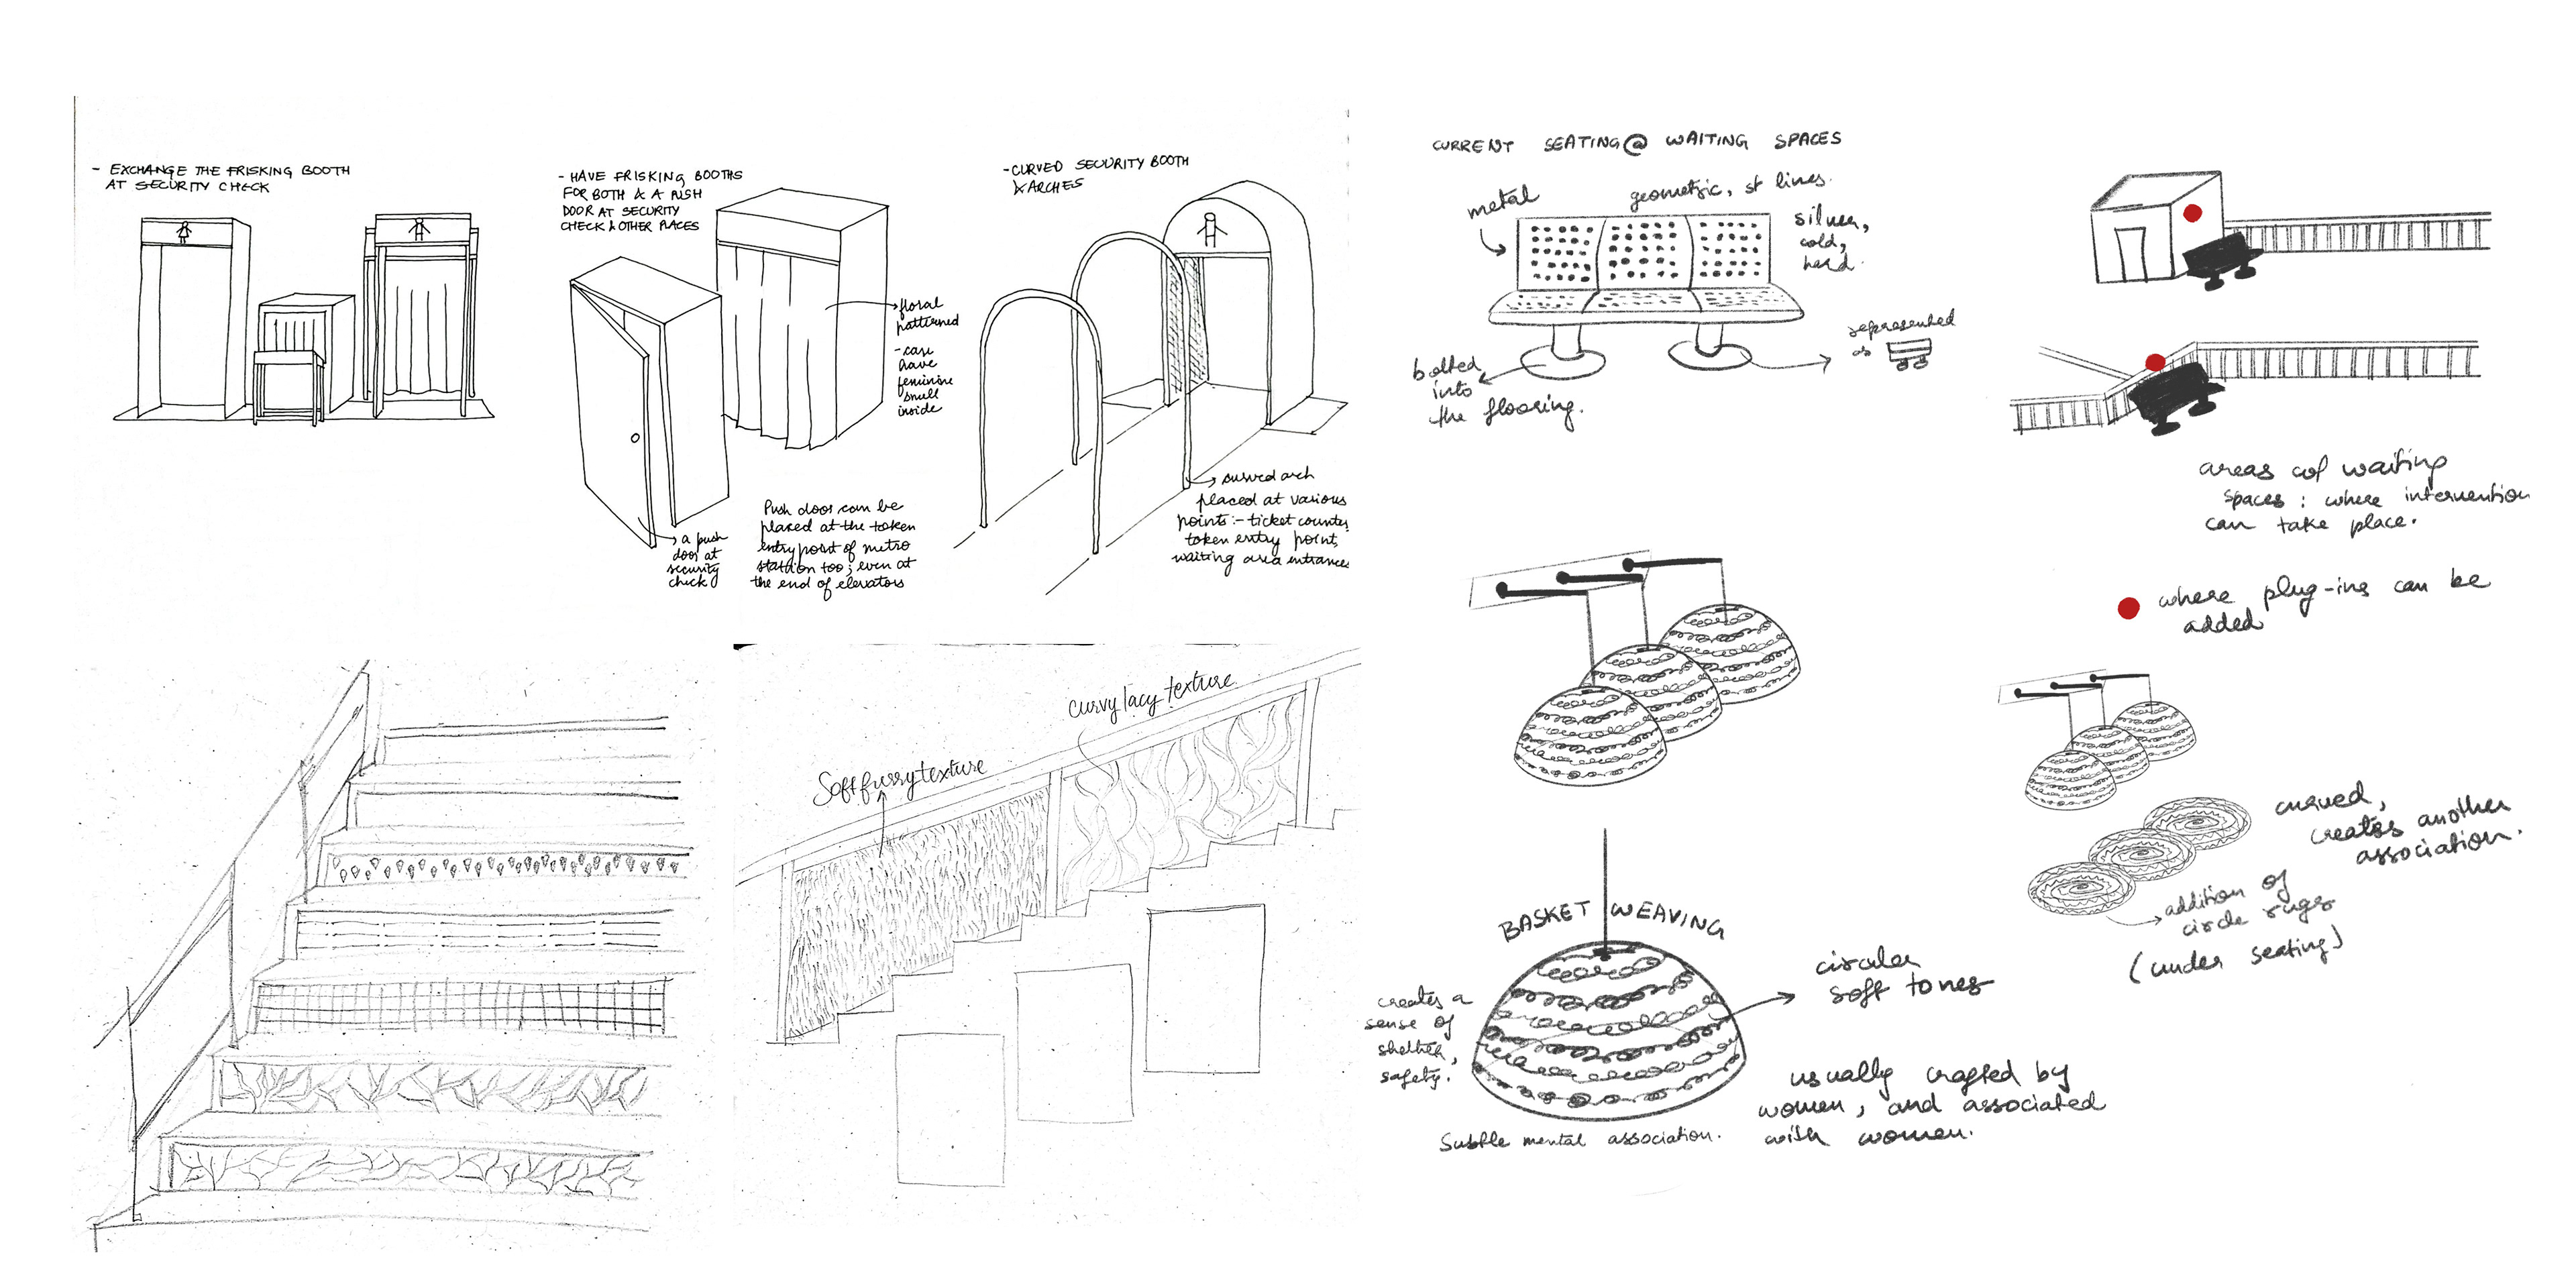 - EXCHANGE THE FRISKING BOOTH
AT SECURITY CHECK
- HAVE FRISKING BOOTHS
FOR BOTH & A PUSH
DOOR AT SECURITY
CHECK & OTHER PLACES
→ floral
patterned
- can
have
feminine
smell
inside
→ a push
door at
security
check
Push door can be
placed at the token
entry point of metro
station too; even at
the end of elevators
- CURVED SECURITY BOOTH
& ARCHES
→ curved arch
placed at various
points:- ticket counter,
token entry point,
waiting area entrances
Soft furry texture
curvy lacy texture
CURRENT SEATING @ WAITING SPACES
metal
geometric, st lines.
silver,
cold,
hard.
bolted
into
the flooring.
represented
as
areas of waiting
spaces : where intervention
can take place.
where plug-ins can be
added
curved,
creates another
association.
→ addition of
circle rugs
(under seating)
BASKET WEAVING
circular
soft tones
creates a
sense of
shelter,
safety.
usually crafted by
women, and associated
with women.
Subtle mental association.